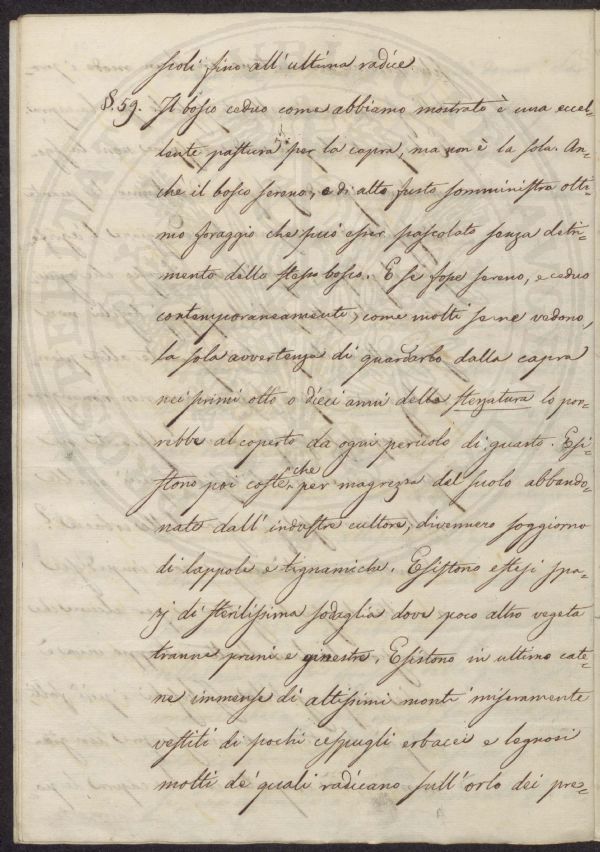 sioli fino all'ultima radice.
§. 59. Il bosco ceduo come abbiamo mostrato è una eccel=
lente pastura per la capra, ma non è la sola. An=
che il bosco sereno, e di alto fusto somministra otti=
mo foraggio che può esser pascolato senza detri=
mento dello stesso bosco. E se fosse sereno, e ceduo
contemporaneamente, come molti se ne vedono,
la sola avvertenza di guardarlo dalla capra
nei primi otto o dieci anni della sterzatura lo por=
rebbe al coperto da ogni pericolo di guasto. Esi=
stono poi coste, che per magrezza del suolo abbando=
nate dall'industre cultore, divennero soggiorno
di lappole e tignamiche. Esistono estesi spa=
zj di sterilissima sodaglia dove poco altro vegeta
tranne pruni e ginestre. Esistono in ultimo cate=
ne immense di altissimi monti miseramente
vestiti di pochi cespugli erbacei e legnosi
molti de' quali radicano sull'orlo dei pre=